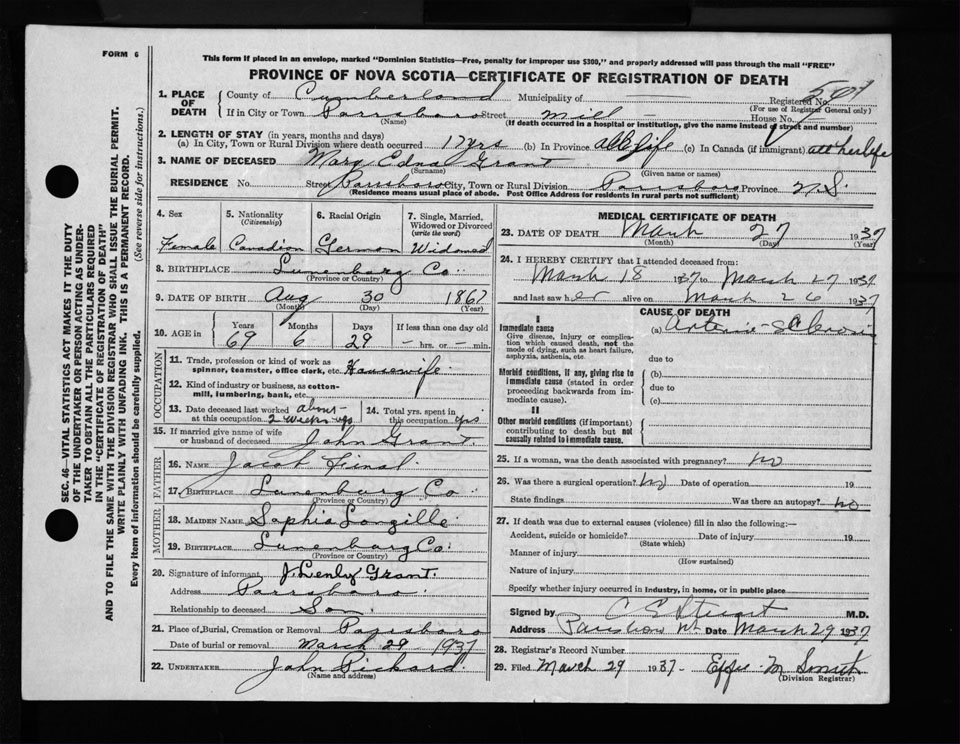 FORM 6
This form if placed in an envelope, marked "Dominion Statistics—Free, penalty for improper use $300," and properly addressed will pass through the mail "FREE"
PROVINCE OF NOVA SCOTIA—CERTIFICATE OF REGISTRATION OF DEATH
SEC. 46—VITAL STATISTICS ACT MAKES IT THE DUTY
OF THE UNDERTAKER OR PERSON ACTING AS UNDER-
TAKER TO OBTAIN ALL THE PARTICULARS REQUIRED
IN THE "CERTIFICATE OF REGISTRATION OF DEATH"
AND TO FILE THE SAME WITH THE DIVISION REGISTRAR WHO SHALL ISSUE THE BURIAL PERMIT.
WRITE PLAINLY WITH UNFADING INK. THIS IS A PERMANENT RECORD.
Every item of information should be carefully supplied. (See reverse side for instructions.)
1. PLACE OF DEATH
County of Cumberland Municipality of — Registered No.
(For use of Registrar General only)
If in City or Town Parrsboro Street Mill — House No.
(Name) (If death occurred in a hospital or institution, give the name instead of street and number)
2. LENGTH OF STAY (in years, months and days)
(a) In City, Town or Rural Division where death occurred 17 yrs (b) In Province all life (c) In Canada (if immigrant) all her life
3. NAME OF DECEASED Mary Edna Grant
(Surname) (Given name or names)
RESIDENCE No. Street Parrsboro City, Town or Rural Division Parrsboro Province N.S.
(Residence means usual place of abode. Post Office Address for residents in rural parts not sufficient)
4. Sex
Female
5. Nationality
(Citizenship)
Canadian
6. Racial Origin
German
7. Single, Married, Widowed or Divorced
(write the word)
Widowed
8. BIRTHPLACE Lunenburg Co.
(Province or Country)
9. DATE OF BIRTH Aug 30 1867
(Month) (Day) (Year)
10. AGE in Years Months Days If less than one day
69 6 29 — hrs. or — min.
OCCUPATION
11. Trade, profession or kind of work as
spinner, teamster, office clerk, etc. Housewife
12. Kind of industry or business, as cotton-
mill, lumbering, bank, etc.
13. Date deceased last worked about
at this occupation 2 weeks ago
14. Total yrs. spent in
this occupation yrs
15. If married give name of wife
or husband of deceased John Grant
FATHER
16. NAME Jacob
17. BIRTHPLACE Lunenburg Co
(Province or Country)
MOTHER
18. MAIDEN NAME Sophia Langille
19. BIRTHPLACE Lunenburg Co.
(Province or Country)
20. Signature of informant Grant.
Address Parrsboro
Relationship to deceased Son
21. Place of Burial, Cremation or Removal Parrsboro
Date of burial or removal March 29 1937
22. UNDERTAKER John Rickard
(Name and address)
MEDICAL CERTIFICATE OF DEATH
23. DATE OF DEATH March 27 1937
(Month) (Day) (Year)
24. I HEREBY CERTIFY that I attended deceased from:
March 18 1937 to March 27 1937
and last saw her alive on March 26 1937
CAUSE OF DEATH
I
Immediate cause
Give disease, injury or complica-
tion which caused death, not the
mode of dying, such as heart failure,
asphyxia, asthenia, etc.
(a) Arterio-
due to
Morbid conditions, if any, giving rise to
immediate cause (stated in order
proceeding backwards from im-
mediate cause).
(b)
due to
(c)
II
Other morbid conditions (if important)
contributing to death but not
causally related to immediate cause.
25. If a woman, was the death associated with pregnancy? No
26. Was there a surgical operation? No Date of operation 19
State findings Was there an autopsy? No
27. If death was due to external causes (violence) fill in also the following:—
Accident, suicide or homicide? Date of injury 19
(State which)
Manner of injury
(How sustained)
Nature of injury
Specify whether injury occurred in industry, in home, or in public place
Signed by C E Stuart M.D.
Address Date March 29 1937
28. Registrar's Record Number
29. Filed March 29 1937 Effie M Smith
(Division Registrar)